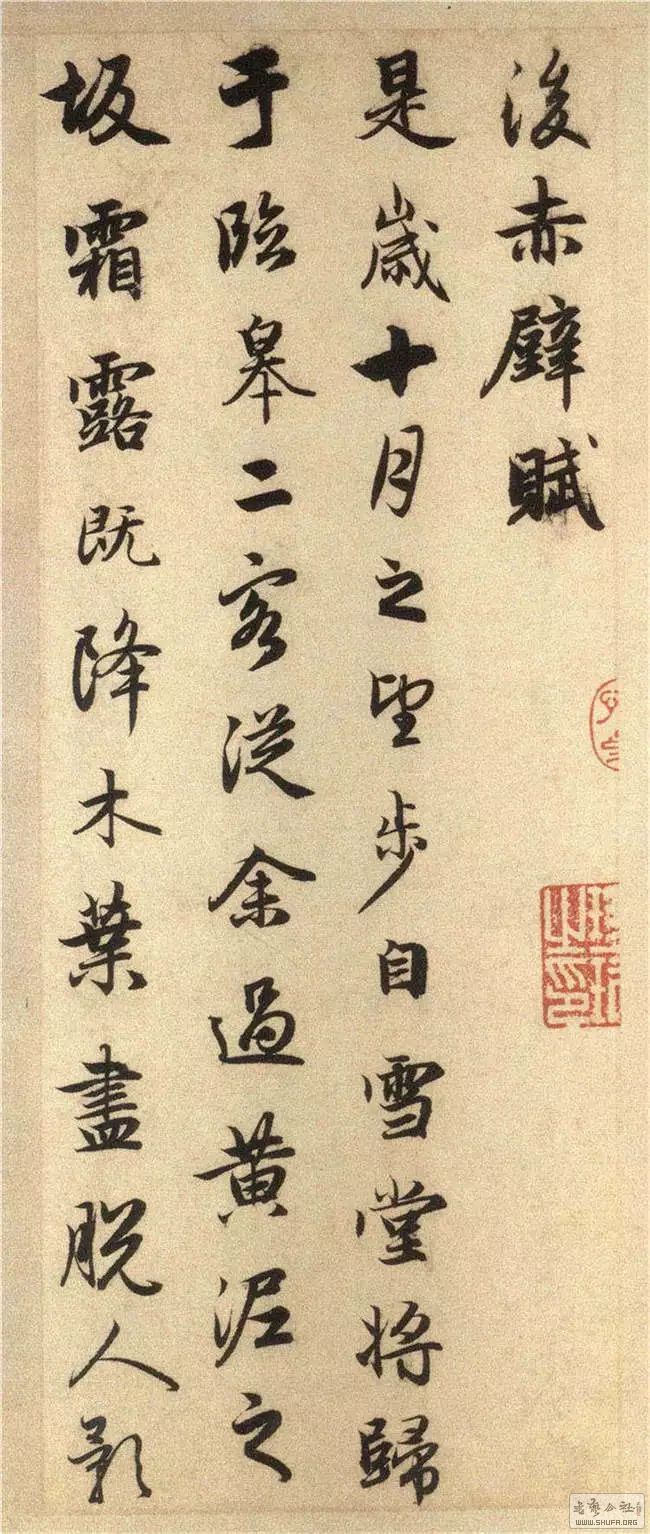 後赤壁賦
是歲十月之望步自雪堂將歸
于臨皋二客從余過黄泥之
坂霜露既降木葉盡脱人影
WWW.SHUFA.ORG